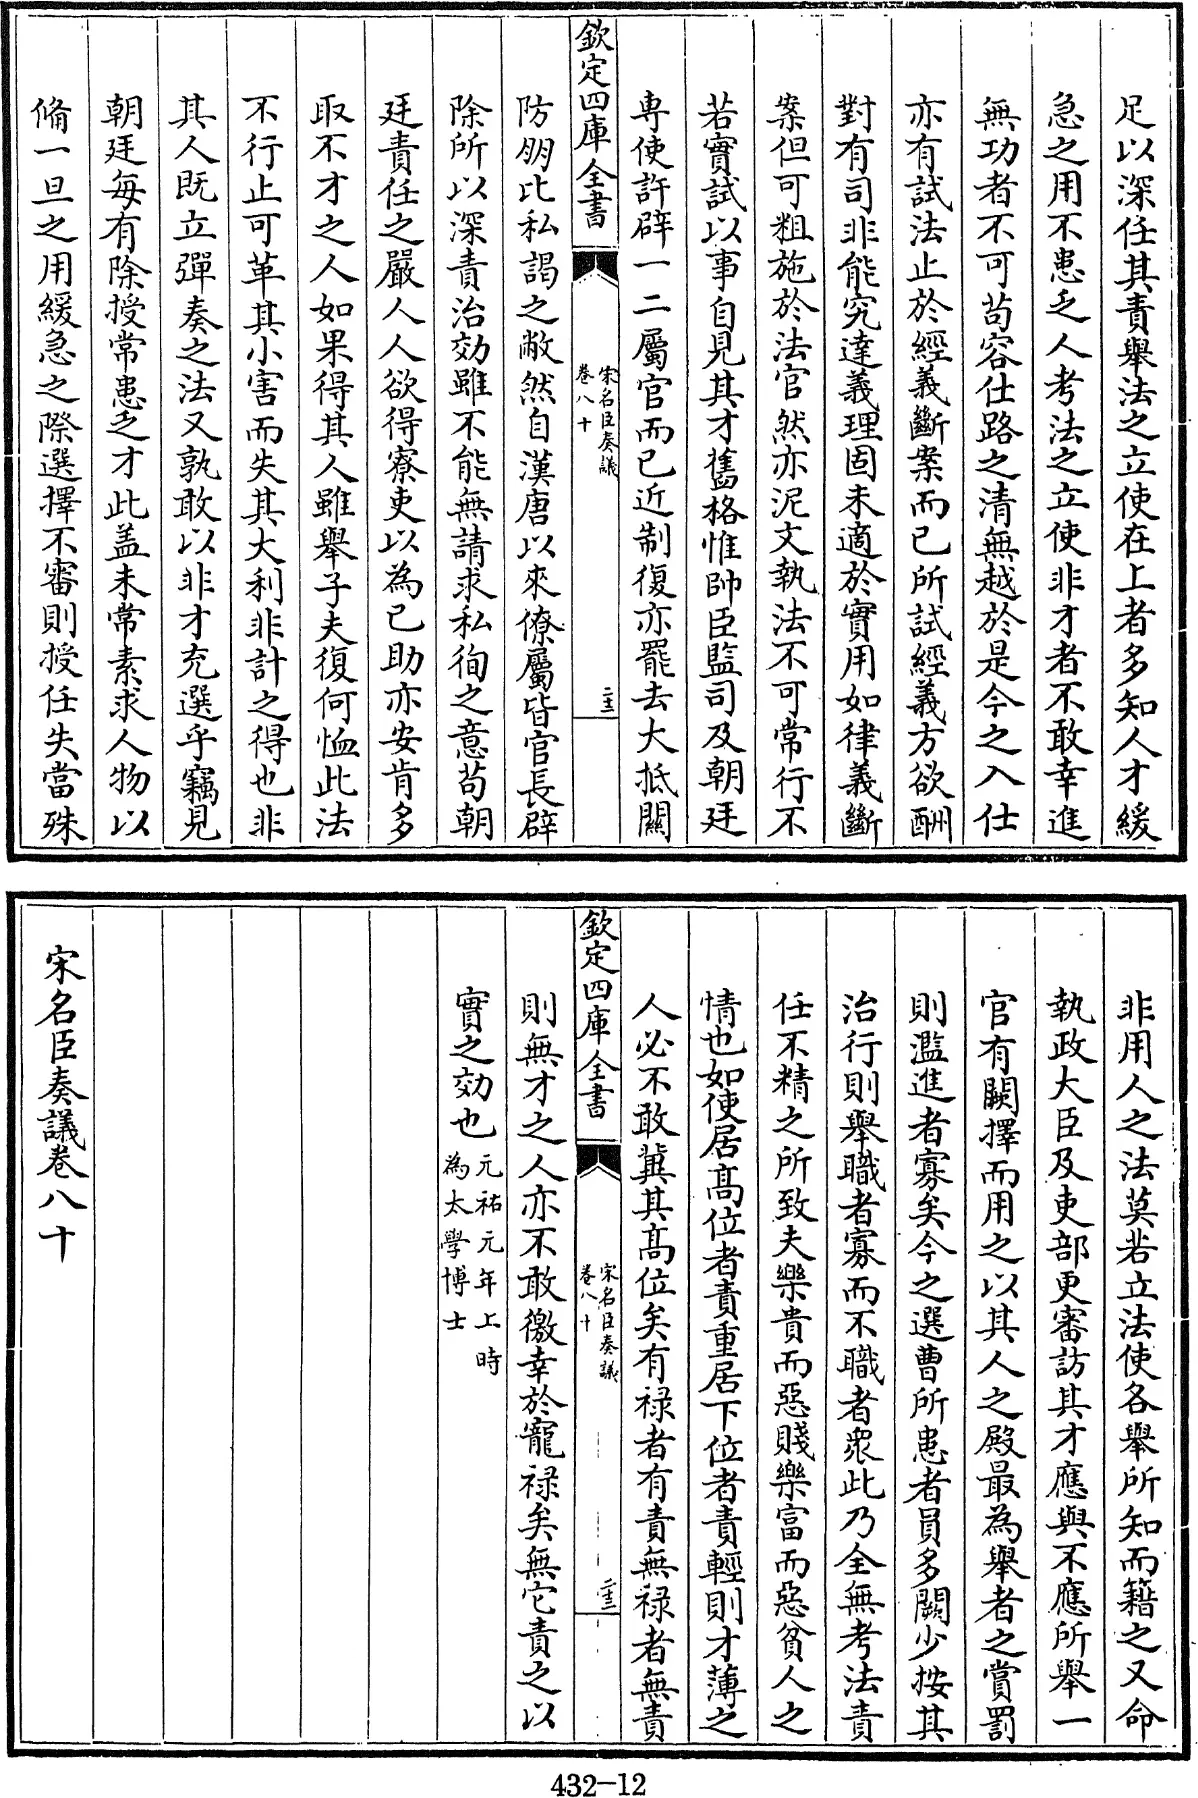 足以深任其責舉法之立使在上者多知人才緩
急之用不患乏人考法之立使非才者不敢幸進
無功者不可苟容仕路之清無越於是今之入仕
亦有試法止於經義斷案而已所試經義方欲酬
對有司非能究達義理固未適於實用如律義斷
案但可粗施於法官然亦泥文執法不可常行不
若實試以事自見其才舊格惟帥臣監司及朝廷
專使許辟一二屬官而已近制復亦罷去大抵關
欽定四庫全書
宋名臣奏議
卷八十
二十三
防朋比私謁之敝然自漢唐以來僚屬皆官長辟
除所以深責治効雖不能無請求私徇之意苟朝
廷責任之嚴人人欲得寮吏以為已助亦安肯多
取不才之人如果得其人雖舉子夫復何恤此法
不行止可革其小害而失其大利非計之得也非
其人既立彈奏之法又孰敢以非才充選乎竊見
朝廷每有除授常患乏才此盖未常素求人物以
脩一旦之用緩急之際選擇不審則授任失當殊
非用人之法莫若立法使各舉所知而籍之又命
執政大臣及吏部更審訪其才應與不應所舉一
官有闕擇而用之以其人之殿最為舉者之賞罰
則濫進者寡矣今之選曹所患者員多闕少按其
治行則舉職者寡而不職者衆此乃全無考法責
任不精之所致夫樂貴而惡賤樂富而惡貧人之
情也如使居髙位者責重居下位者責輕則才薄之
人必不敢冀其髙位矣有禄者有責無禄者無責
欽定四庫全書
宋名臣奏議
卷八十
二十三
則無才之人亦不敢徼幸於寵禄矣無它責之以
實之効也元祐元年上時
為太學博士
宋名臣奏議卷八十
432-12